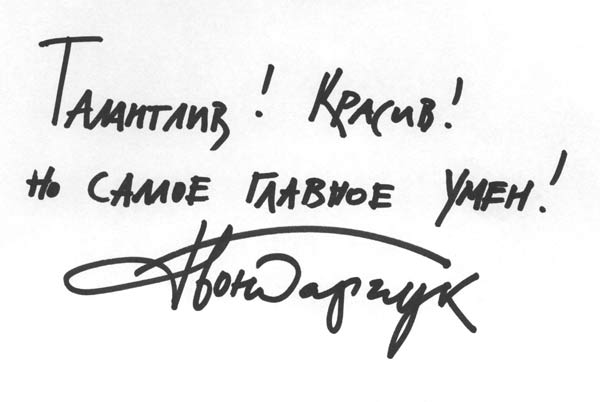 Талантлив! Красив!
но самое главное умен!
Бондарчук